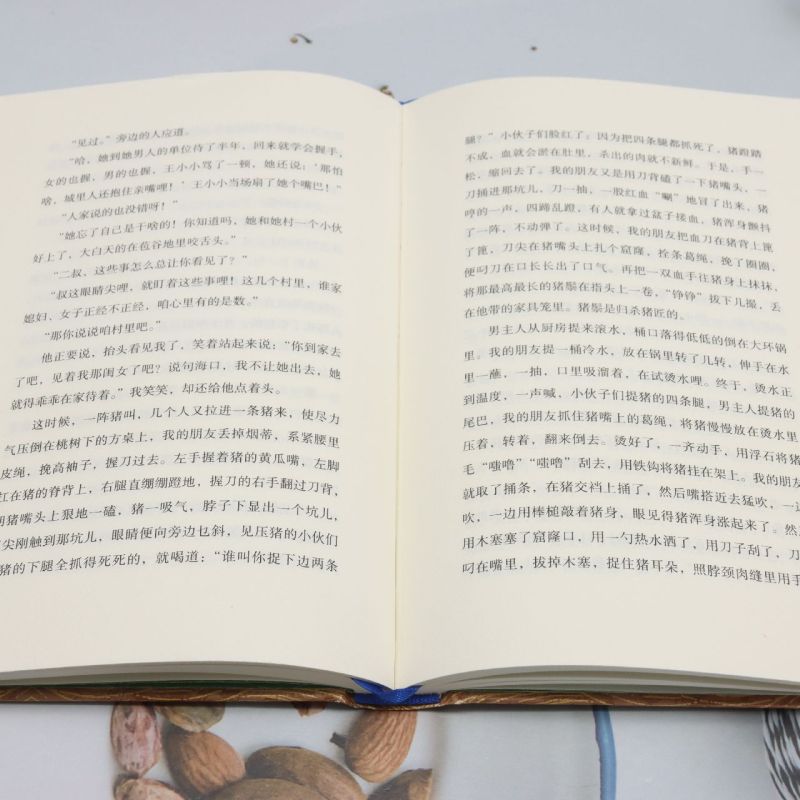 “见过。”旁边的人应道。
“哈，她到她男人的单位待了半年，回来就学会握手，
女的也握，男的也握，王小小骂了一顿，她还说：‘那怕
啥，城里人还抱住亲嘴哩！’王小小当场扇了她个嘴巴！”
“人家说的也没错呀！”
“她忘了自己是干啥的！你知道吗，她和她村一个小伙
好上了，大白天的在苞谷地里咬舌头。”
“二叔，这些事怎么总让你看见了？”
“叔这眼睛尖哩，就盯着这些事哩！这几个村里，谁家
媳妇、女子正经不正经，咱心里有的是数。”
“那你说说咱村里吧。”
他正要说，抬头看见我了，笑着站起来说：“你到家去
了吧，见着我那闺女了吧？说句海口，我不让她出去，她
就得乖乖在家待着。”我笑笑，却还给他点着头。
这时候，一阵猪叫，几个人又拉进一条猪来，使尽力
气压倒在桃树下的方桌上，我的朋友丢掉烟蒂，系紧腰里
皮绳，挽高袖子，握刀过去。左手握着猪的黄瓜嘴，左脚
在猪的脊背上，右腿直绷绷蹬地，握刀的右手翻过刀背，
猪嘴头上狠地一磕，猪一吸气，脖子下显出一个坑儿，
尖刚触到那坑儿，眼睛便向旁边乜斜，见压猪的小伙们
猪的下腿全抓得死死的，就喝道：“谁叫你捉下边两条
腿？”小伙子们脸红了；因为把四条腿都抓死了，猪蹬踏
不成，血就会淤在肚里，杀出的肉就不新鲜。于是，手一
松，缩回去了。我的朋友又是用刀背磕了一下猪嘴头，一
刀捅进那坑儿，刀一抽，一股红血“唰”地冒了出来，猪
哼的一声，四蹄乱蹬，有人就拿过盆子接血，猪浑身颤抖
了一阵，不动弹了。这时候，我的朋友把血刀在猪背上篦
了篦，刀尖在猪嘴头上扎个窟窿，拴条葛绳，挽了圈圈，
便叼刀在口长长出了口气。再把一双血手往猪身上抹抹，
将那最高最长的猪鬃在指头上一卷，“铮铮”拔下几撮，丢
在他带的家具笼里。猪鬃是归杀猪匠的。
男主人从厨房提来滚水，桶口落得低低的倒在大环锅
里。我的朋友提一桶冷水，放在锅里转了几转，伸手在水
里一蘸，一抽，口里吸溜着，在试烫水哩。终于，烫水正
到温度，一声喊，小伙子们提猪的四条腿，男主人提猪的
尾巴，我的朋友抓住猪嘴上的葛绳，将猪慢慢放在烫水里
压着，转着，翻来倒去。烫好了，一齐动手，用浮石将猪
毛“嗤噜”“嗤噜”刮去，用铁钩将猪挂在架上。我的朋友
就取了捅条，在猪交裆上捅了，然后嘴搭近去猛吹，一
吹，一边用棒槌敲着猪身，眼见得猪浑身涨起来了。然
用木塞塞了窟窿口，用一勺热水洒了，用刀子刮了，刀
叼在嘴里，拔掉木塞，捉住猪耳朵，照脖颈肉缝里用手